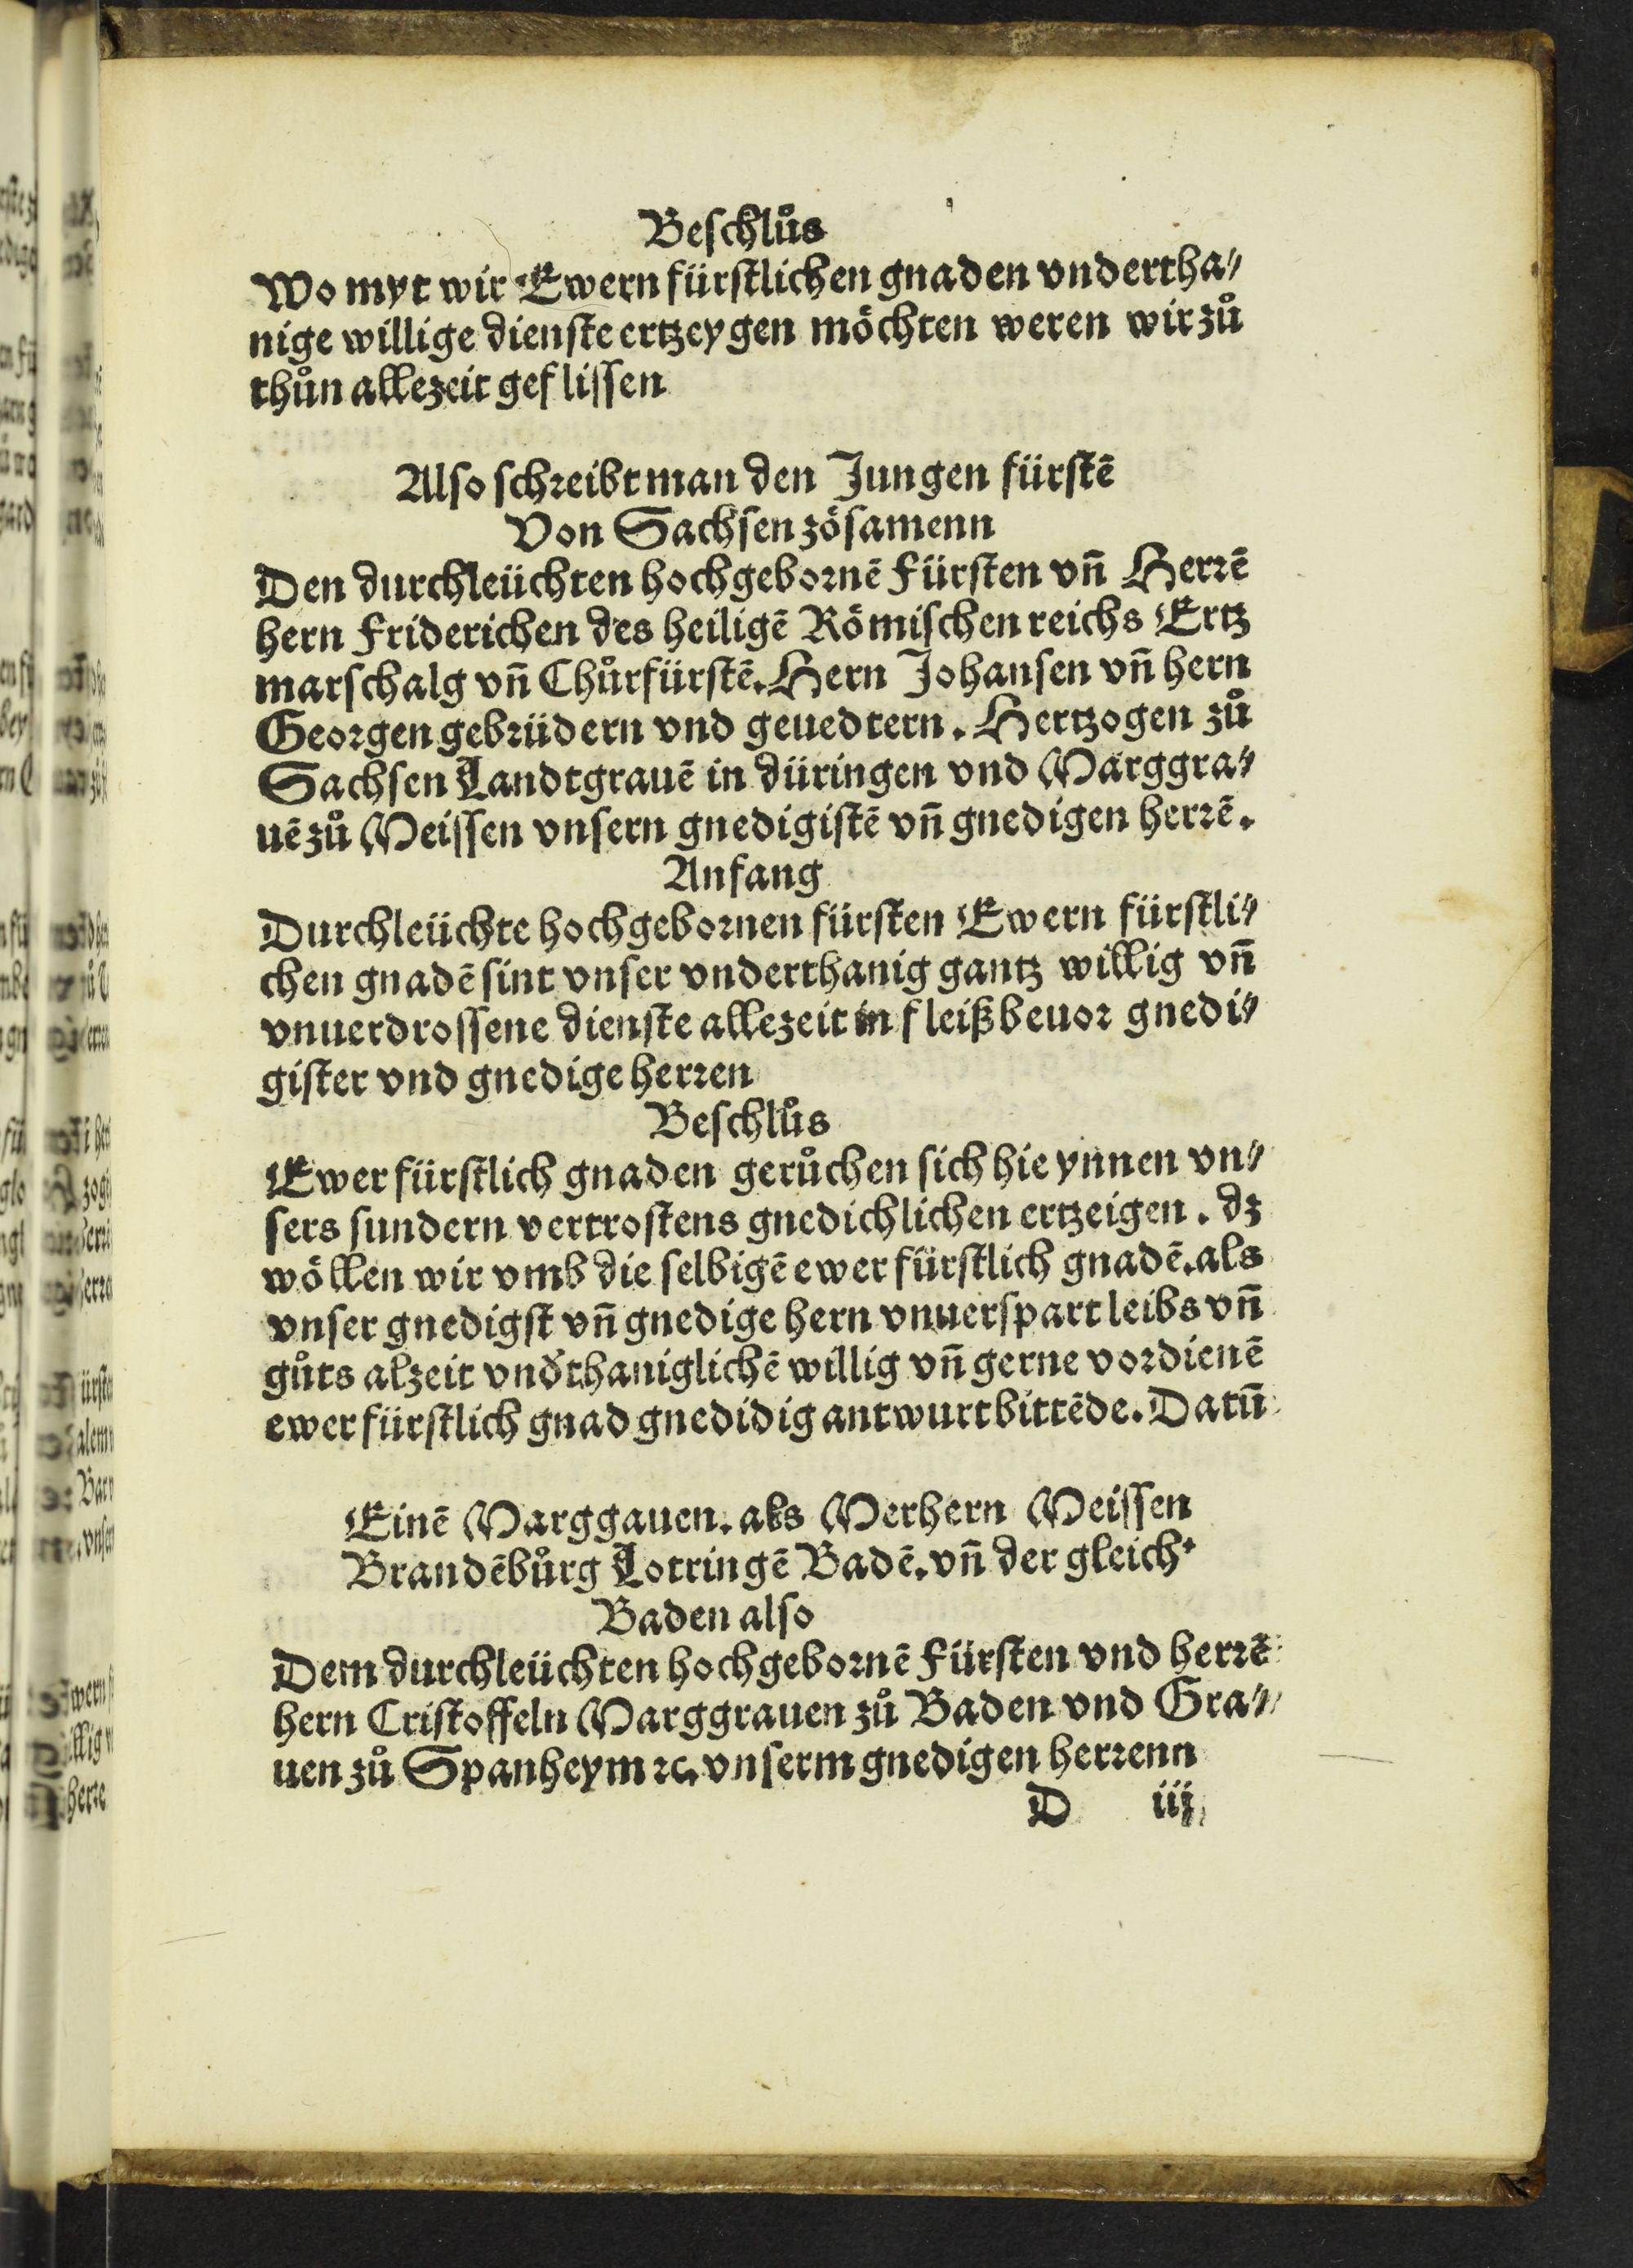 Beschlůs
Wo myt wir Ewern fürstlichen gnaden vndertha⸗
nige willige dienste ertzeygen möchten weren wir zů
thůn allezeit geflissen
Also schreibt man den Jungen fürstē
Von Sachsen zösamenn
Den durchleüchten hochgebornē Fürsten vñ Herrē
hern Friderichen des heiligē Römischen reichs Ertz
marschalg vñ Chůrfürstē. Hern Johansen vñ hern
Georgen gebrüdern vnd geuedtern. Hertzogen zů
Sachsen Landtgrauē in düringen vnd Marggra⸗
uē zů Meissen vnsern gnedigistē vñ gnedigen herrē.
Anfang
Durchleüchte hochgebornen fürsten Ewern fürstli⸗
chen gnadē sint vnser vnderthanig gantz willig vñ
vnuerdrossene dienste allezeit in fleiß beuor gnedi⸗
gister vnd gnedige herren
Beschlůs
Ewer fürstlich gnaden gerůchen sich hie ynnen vn⸗
sers sundern vertrostens gnedichlichen ertzeigen. dz
wöllen wir vmb die selbigē ewer fürstlich gnadē. als
vnser gnedigst vñ gnedige hern vnuerspart leibs vñ
gůts alzeit vnd̓thaniglichē willig vñ gerne vordienē
ewer fürstlich gnad gnedidig antwurt bittēde. Datū
Einē Marggauen. als Merhern Meissen
Brandēbůrg Lotringē Badē. vñ der gleich⁺
Baden also
Dem durchleüchten hochgebornē Fürsten vnd herrē
hern Cristoffeln Marggrauen zů Baden vnd Gra⸗
uen zů Spanheym ꝛc. vnserm gnedigen herrenn
D iij